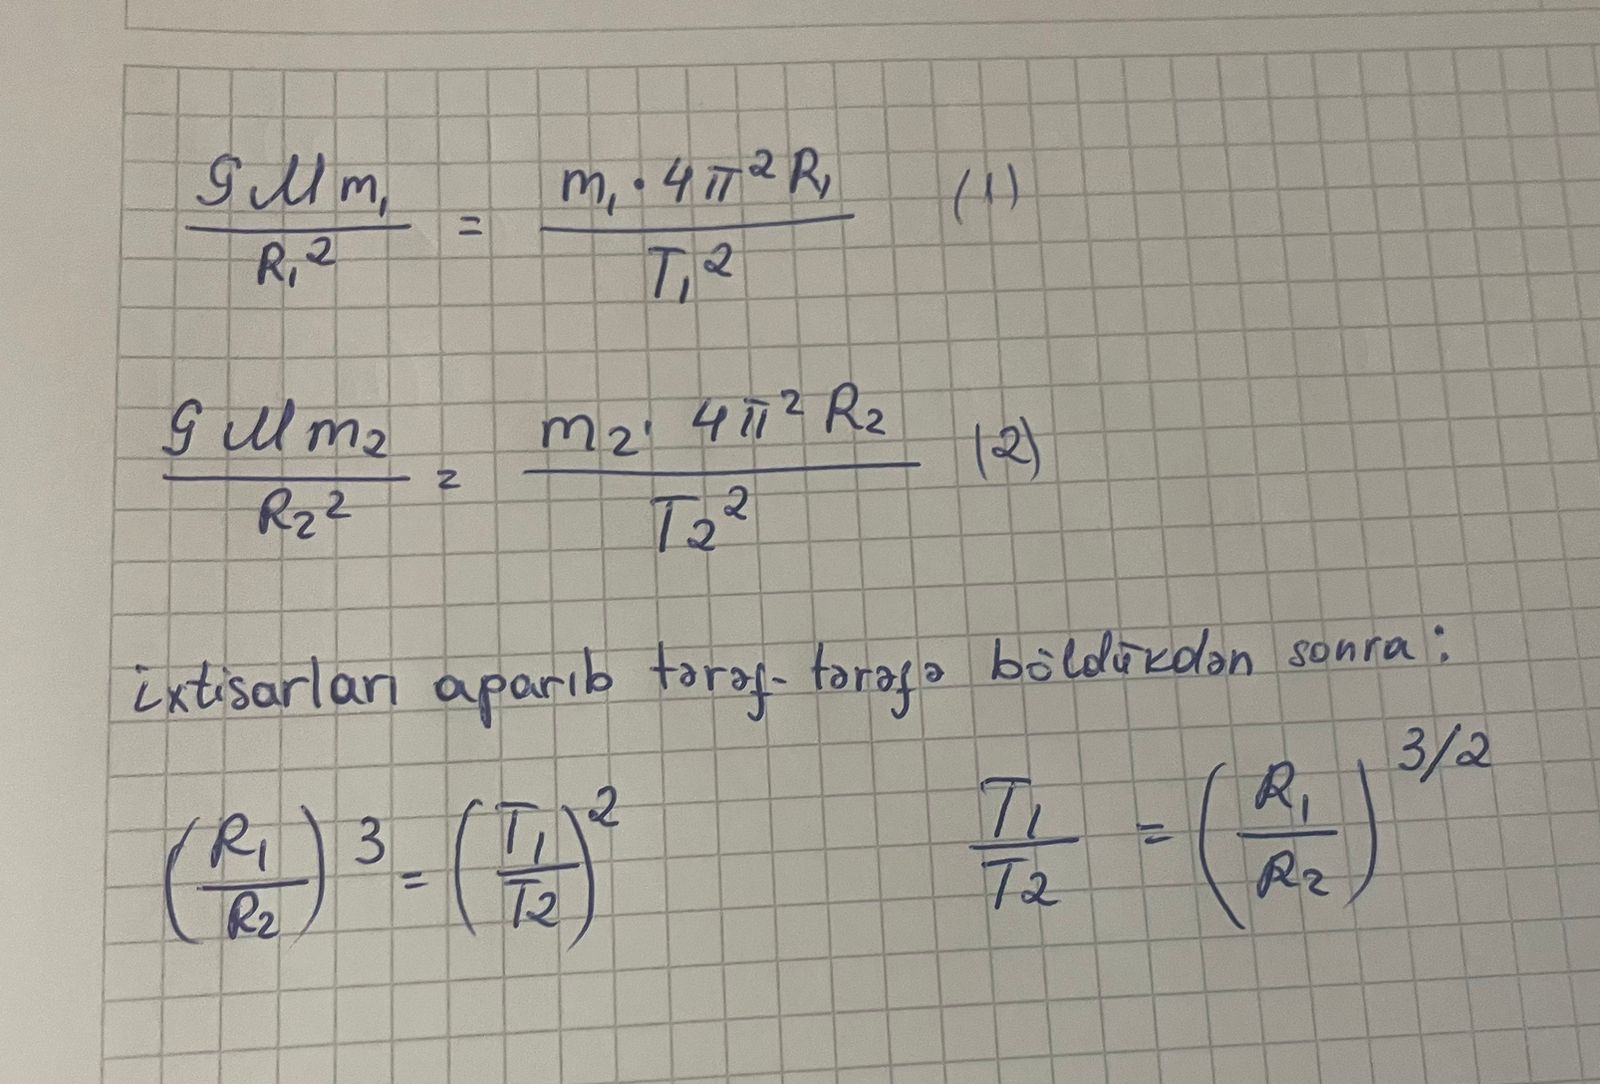 GMm₁/R₁² = m₁·4π²R₁/T₁² (1)
GMm₂/R₂² = m₂·4π²R₂/T₂² (2)
ixtisarları aparıb tərəf-tərəfə böldükdən sonra:
(R₁/R₂)³ = (T₁/T₂)² T₁/T₂ = (R₁/R₂)^3/2